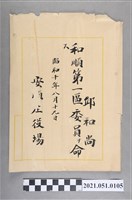 邱和尚
和順第一區委員ヲ命
ス
昭和十年八月十九日
安順庄役場
2021.051.0105